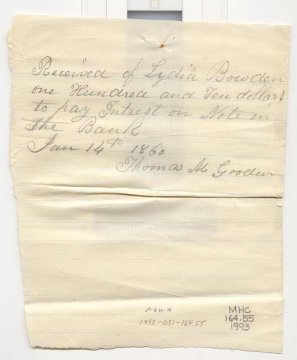 Received of Lydia Bowden
one Hundred and Ten dollars
to pay Interest on Note in
the Bank
Jan 14th 1860
Thomas M Goodwin
NEW #
1993-031-164.55
MHC
164.55
1993